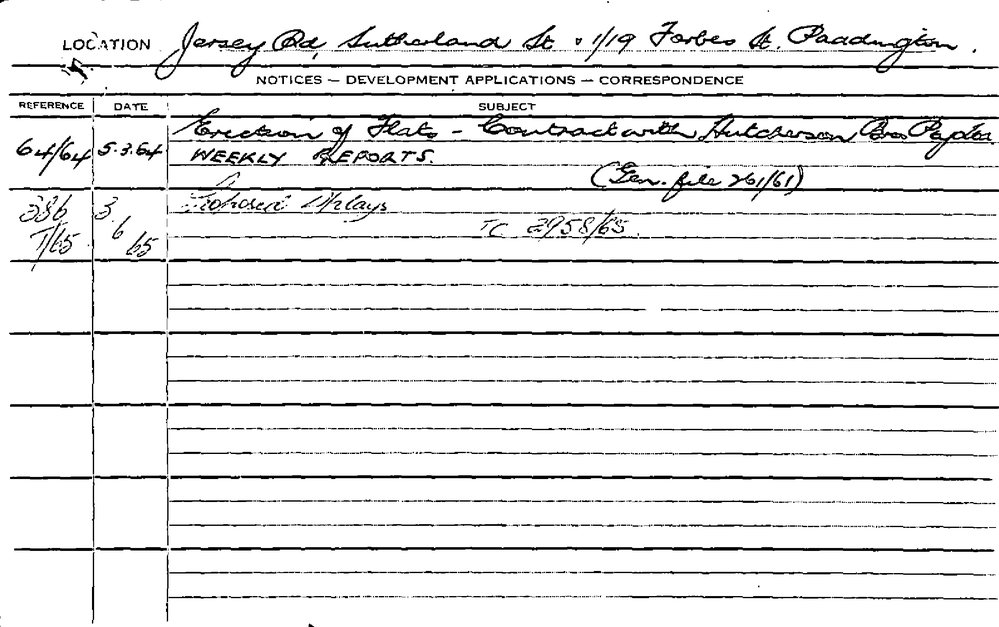 LOCATION Jersey Rd, Sutherland St & 1/19 Forbes St. Paddington.
NOTICES — DEVELOPMENT APPLICATIONS — CORRESPONDENCE
REFERENCE DATE SUBJECT
64/64 5.3.64 Erection of Flats - Contract with Hutcherson Bros Pty Ltd.
WEEKLY REPORTS.
(Gen. file 261/61)
386 3 Proposed
6 TC 2958/65.
7/65 65